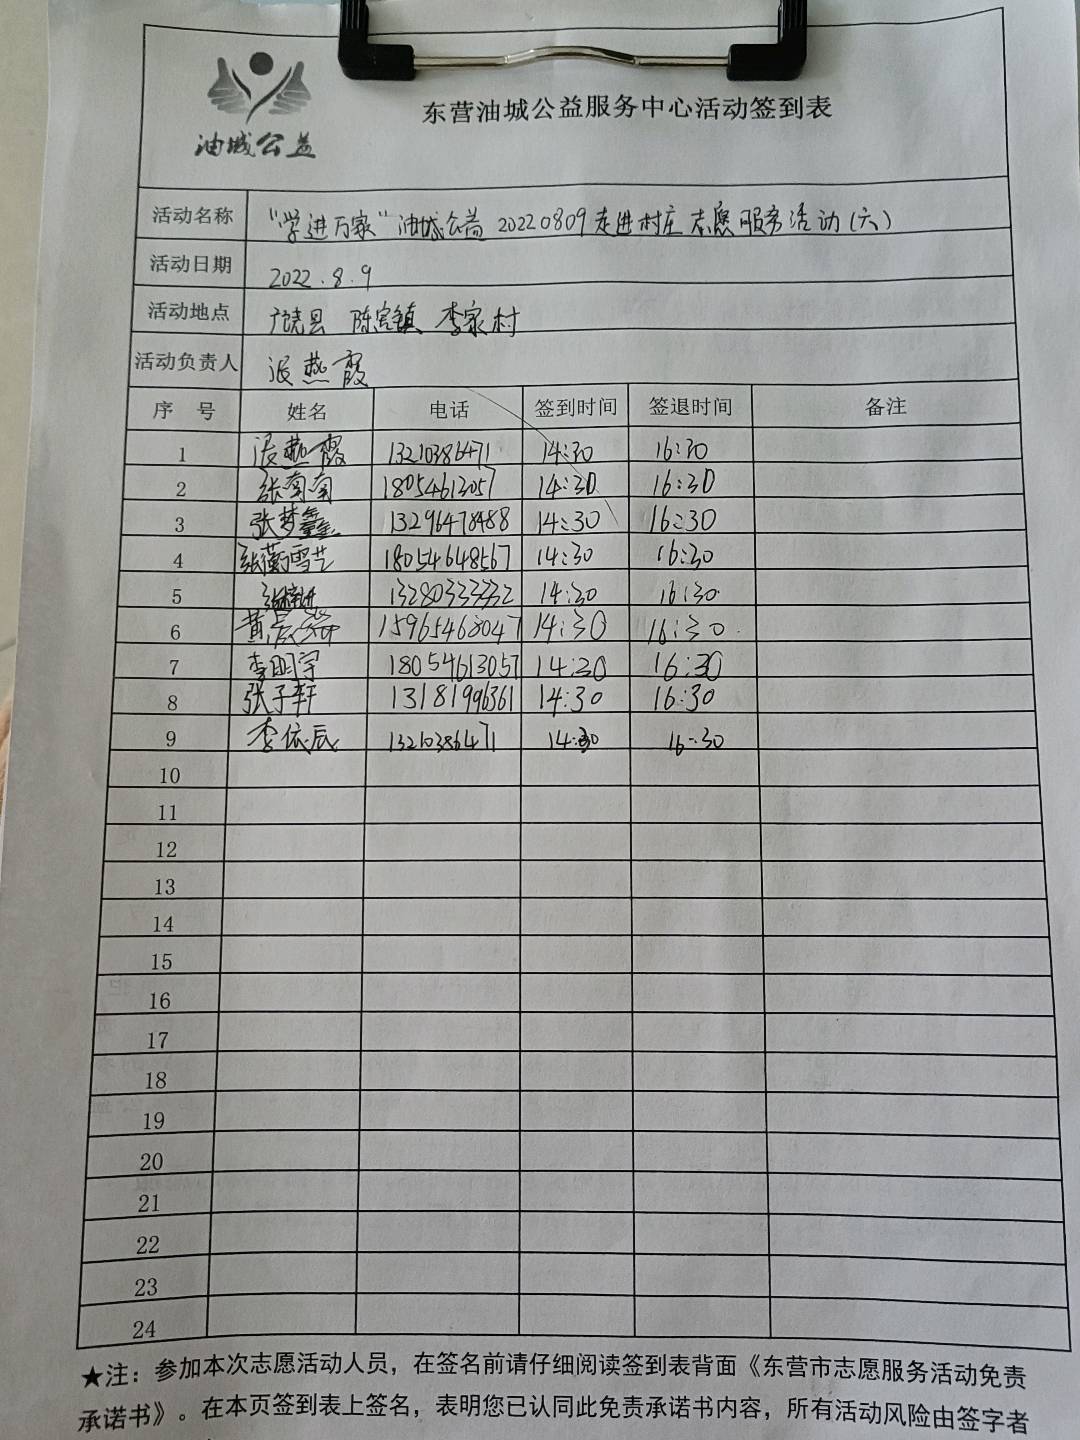 油城公益
东营油城公益服务中心活动签到表
活动名称 “学进万家”油城公益20220809走进村庄志愿服务活动(六)
活动日期 2022.8.9
活动地点 广饶县 陈官镇 李家村
活动负责人 张燕霞
序号 姓名 电话 签到时间 签退时间 备注
1 张燕霞 13210386471 14:30 16:30
2 张南南 18054613057 14:30 16:30
3 张梦鑫 13296478488 14:30 16:30
4 18054648567 14:30 16:30
5 13280333332 14:30 16:30
6 15965468047 14:30 16:30
7 李明宇 18054613057 14:30 16:30
8 张子轩 13181996361 14:30 16:30
9 李依辰 13210386471 14:30 16:30
10
11
12
13
14
15
16
17
18
19
20
21
22
23
24
★注：参加本次志愿活动人员，在签名前请仔细阅读签到表背面《东营市志愿服务活动免责
承诺书》。在本页签到表上签名，表明您已认同此免责承诺书内容，所有活动风险由签字者